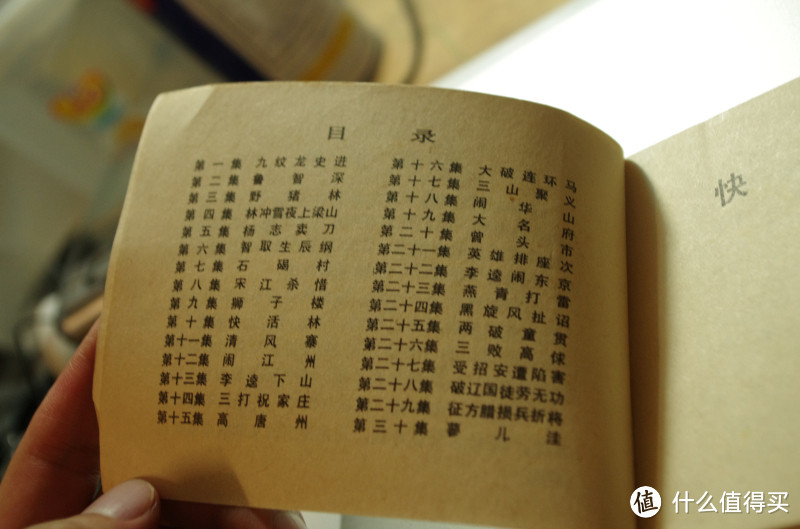 目录
第一集 九纹龙史进
第二集 鲁智深
第三集 野猪林
第四集 林冲雪夜上梁山
第五集 杨志卖刀
第六集 智取生辰纲
第七集 石碣村
第八集 宋江杀惜
第九集 狮子楼
第十集 快活林
第十一集 清风寨
第十二集 闹江州
第十三集 李逵下山
第十四集 三打祝家庄
第十五集 高唐州
第十六集 大破连环马
第十七集 三山聚义
第十八集 闹华山
第十九集 大名府
第二十集 曾头市
第二十一集 英雄排座次
第二十二集 李逵闹东京
第二十三集 燕青打擂
第二十四集 黑旋风扯诏
第二十五集 两破童贯
第二十六集 三败高俅
第二十七集 受招安遭陷害
第二十八集 破辽国徒劳无功
第二十九集 征方腊损兵折将
第三十集 蓼儿洼
快
值 什么值得买